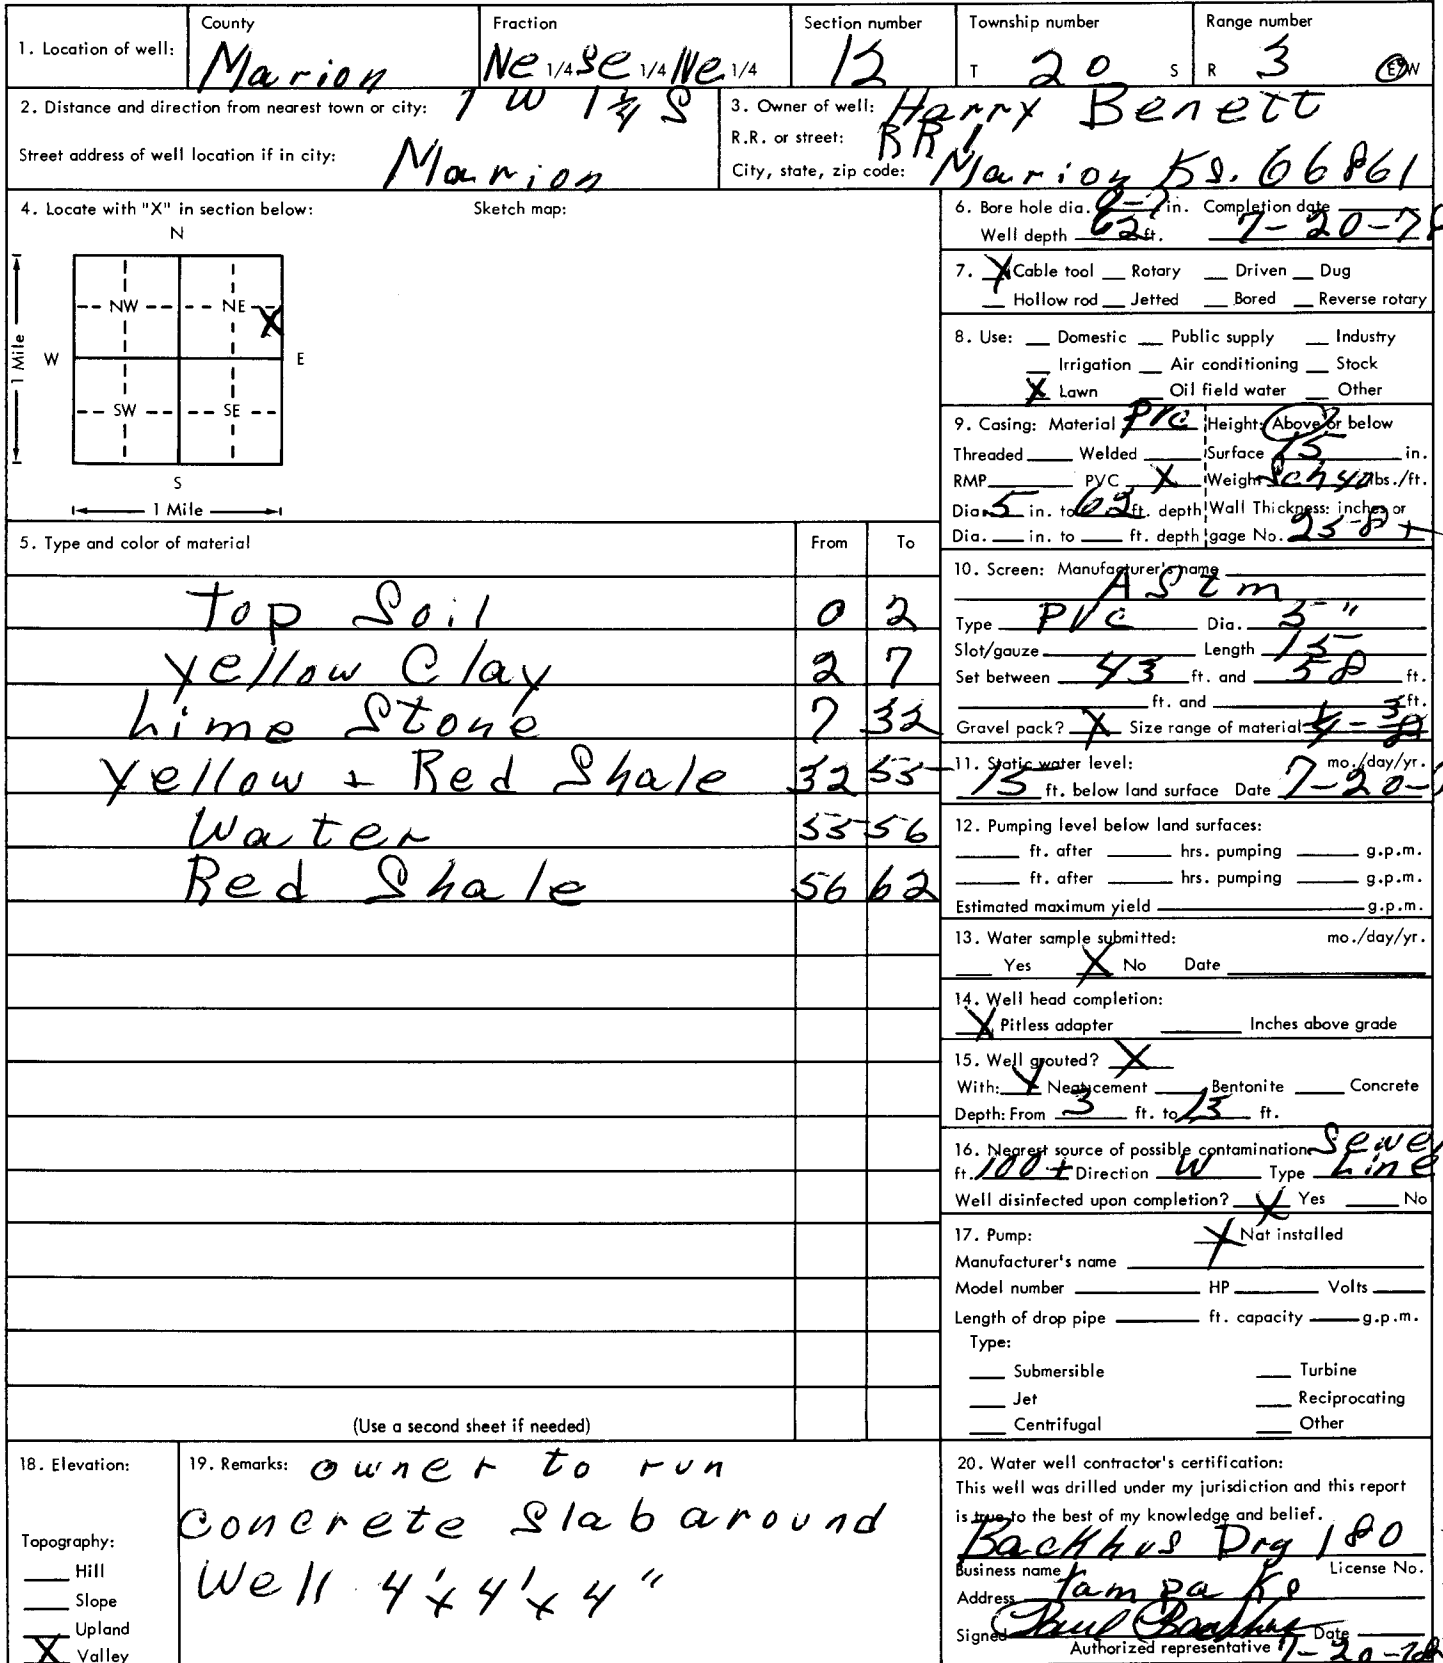 1. Location of well: County Marion Fraction Ne 1/4 Se 1/4 Ne 1/4 Section number 12 Township number T 20 S Range number R 3 E/W
2. Distance and direction from nearest town or city: 1 W 1 1/4 S
Street address of well location if in city: Marion
3. Owner of well: Harry Benett
R.R. or street: RR 1
City, state, zip code: Marion Ks. 66861
4. Locate with "X" in section below: Sketch map:
N
NW NE
X
W E
1 Mile
SW SE
S
1 Mile
5. Type and color of material From To
Top Soil 0 2
Yellow Clay 2 7
Lime Stone 7 32
Yellow + Red Shale 32 55
Water 55 56
Red Shale 56 62
(Use a second sheet if needed)
6. Bore hole dia. in. Completion date
Well depth 62 ft. 7-20-78
7. X Cable tool Rotary Driven Dug
Hollow rod Jetted Bored Reverse rotary
8. Use: Domestic Public supply Industry
Irrigation Air conditioning Stock
X Lawn Oil field water Other
9. Casing: Material PVC Height: Above or below
Threaded Welded Surface 15 in.
RMP PVC X Weight Sch 40 lbs./ft.
Dia. 5 in. to 62 ft. depth Wall Thickness: inches or
Dia. in. to ft. depth gage No. 258 +
10. Screen: Manufacturer's name
AStm
Type PVC Dia. 5"
Slot/gauze Length 15
Set between 43 ft. and 58 ft.
ft. and ft.
Gravel pack? X Size range of material 1/4 - 3/8
11. Static water level: mo./day/yr.
15 ft. below land surface Date 7-20-
12. Pumping level below land surfaces:
ft. after hrs. pumping g.p.m.
ft. after hrs. pumping g.p.m.
Estimated maximum yield g.p.m.
13. Water sample submitted: mo./day/yr.
Yes X No Date
14. Well head completion:
X Pitless adapter Inches above grade
15. Well grouted? X
With: X Neat cement Bentonite Concrete
Depth: From 3 ft. to 13 ft.
16. Nearest source of possible contamination: Sewer
ft. 100 + Direction W Type Line
Well disinfected upon completion? X Yes No
17. Pump: X Not installed
Manufacturer's name
Model number HP Volts
Length of drop pipe ft. capacity g.p.m.
Type:
Submersible Turbine
Jet Reciprocating
Centrifugal Other
18. Elevation:
Topography:
Hill
Slope
Upland
X Valley
19. Remarks: owner to run
Concrete Slab around
Well 4'x4'x4"
20. Water well contractor's certification:
This well was drilled under my jurisdiction and this report
is true to the best of my knowledge and belief.
Backhus Drg 180
Business name License No.
Address Tampa Ks
Signed Paul Backhus Date
Authorized representative 7-20-78